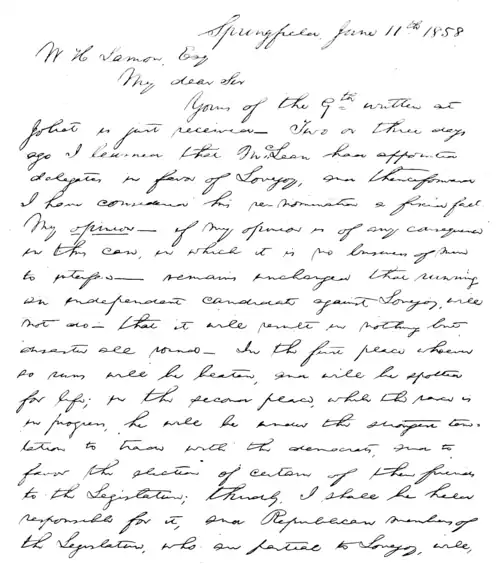 Springfield, June 11th 1858
W. H. Lamon, Esq
My dear Sir
Yours of the 9th written at
Joliet is just received— Two or three days
ago I learned that McLean had appointed
delegates in favor of Lovejoy, and thenceforward
I have considered his renomination a fixed fact
My opinion— if my opinion is of any consequence
in this case, in which it is no business of mine
to interfere— remains unchanged that running
an independent candidate against Lovejoy, will
not do— that it will result in nothing but
disaster all round— In the first place whoever
so runs will be beaten, and will be spotted
for life; in the second place, while the race is
in progress, he will be under the strongest temp-
tation to trade with the democrats, and to
favor the election of certain of their friends
to the Legislature; thirdly, I shall be held
responsible for it, and Republican members of
the Legislature, who are partial to Lovejoy, will,